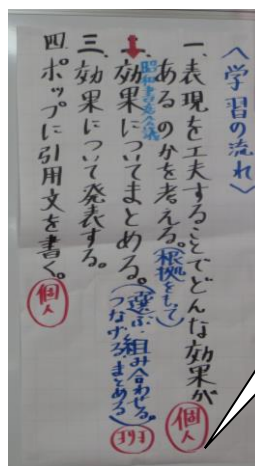 〈学習の流れ〉
一、表現を工夫することでどんな効果が
あるのかを考える。(根拠をもって)
個人
二、効果についてまとめる。(選ぶ・組み合わせる。
つなげる、まとめる)
三、効果について発表する。
四、ポップに引用文を書く。
個人